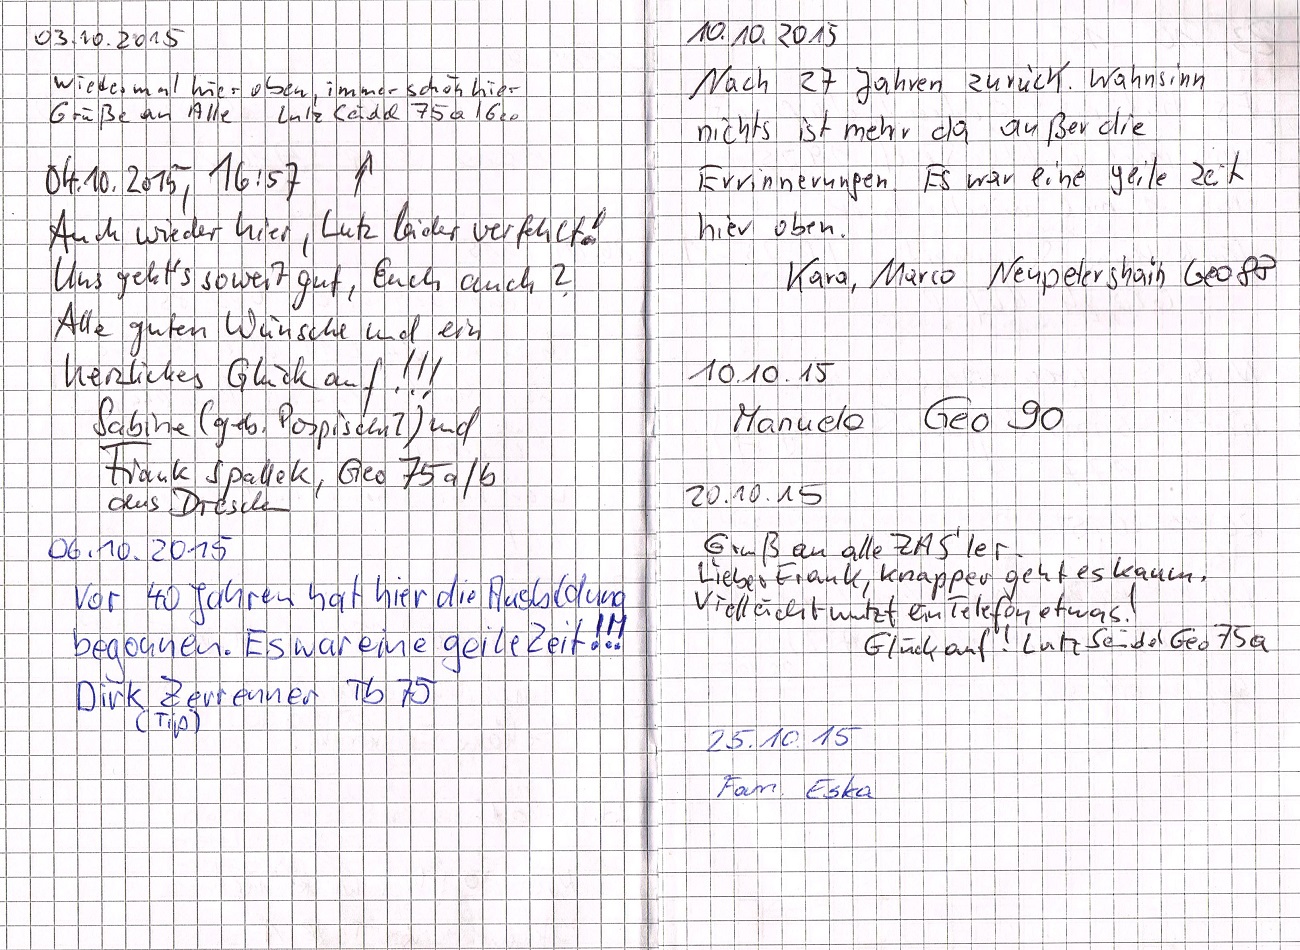 03.10.2015
Wieder mal hier oben, immer schön hier
Grüße an Alle Lutz Seidel 75a/Geo
04.10.2015, 16:57 ↑
Auch wieder hier, Lutz leider verfehlt!
Uns geht's soweit gut, Euch auch?
Alle guten Wünsche und ein
herzliches Glück auf!!!
Sabine (geb. Pospischil) und
Frank Spallek, Geo 75a/b
aus Dresden
06.10.2015
Vor 40 Jahren hat hier die Ausbildung
begonnen. Es war eine geile Zeit!!!
Dirk Zerrenner Tb 75
(Tip)
10.10.2015
Nach 27 Jahren zurück. Wahnsinn
nichts ist mehr da außer die
Errinnerungen. Es war eine geile Zeit
hier oben.
Kara, Marco Neupetershain Geo 88
10.10.15
Manuela Geo 90
20.10.15
Gruß an alle ZAS'ler.
Lieber Frank, knapper geht es kaum.
Vielleicht nutzt ein Telefon etwas!
Glück auf! Lutz Seidel Geo 75a
25.10.15
Fam. Eska